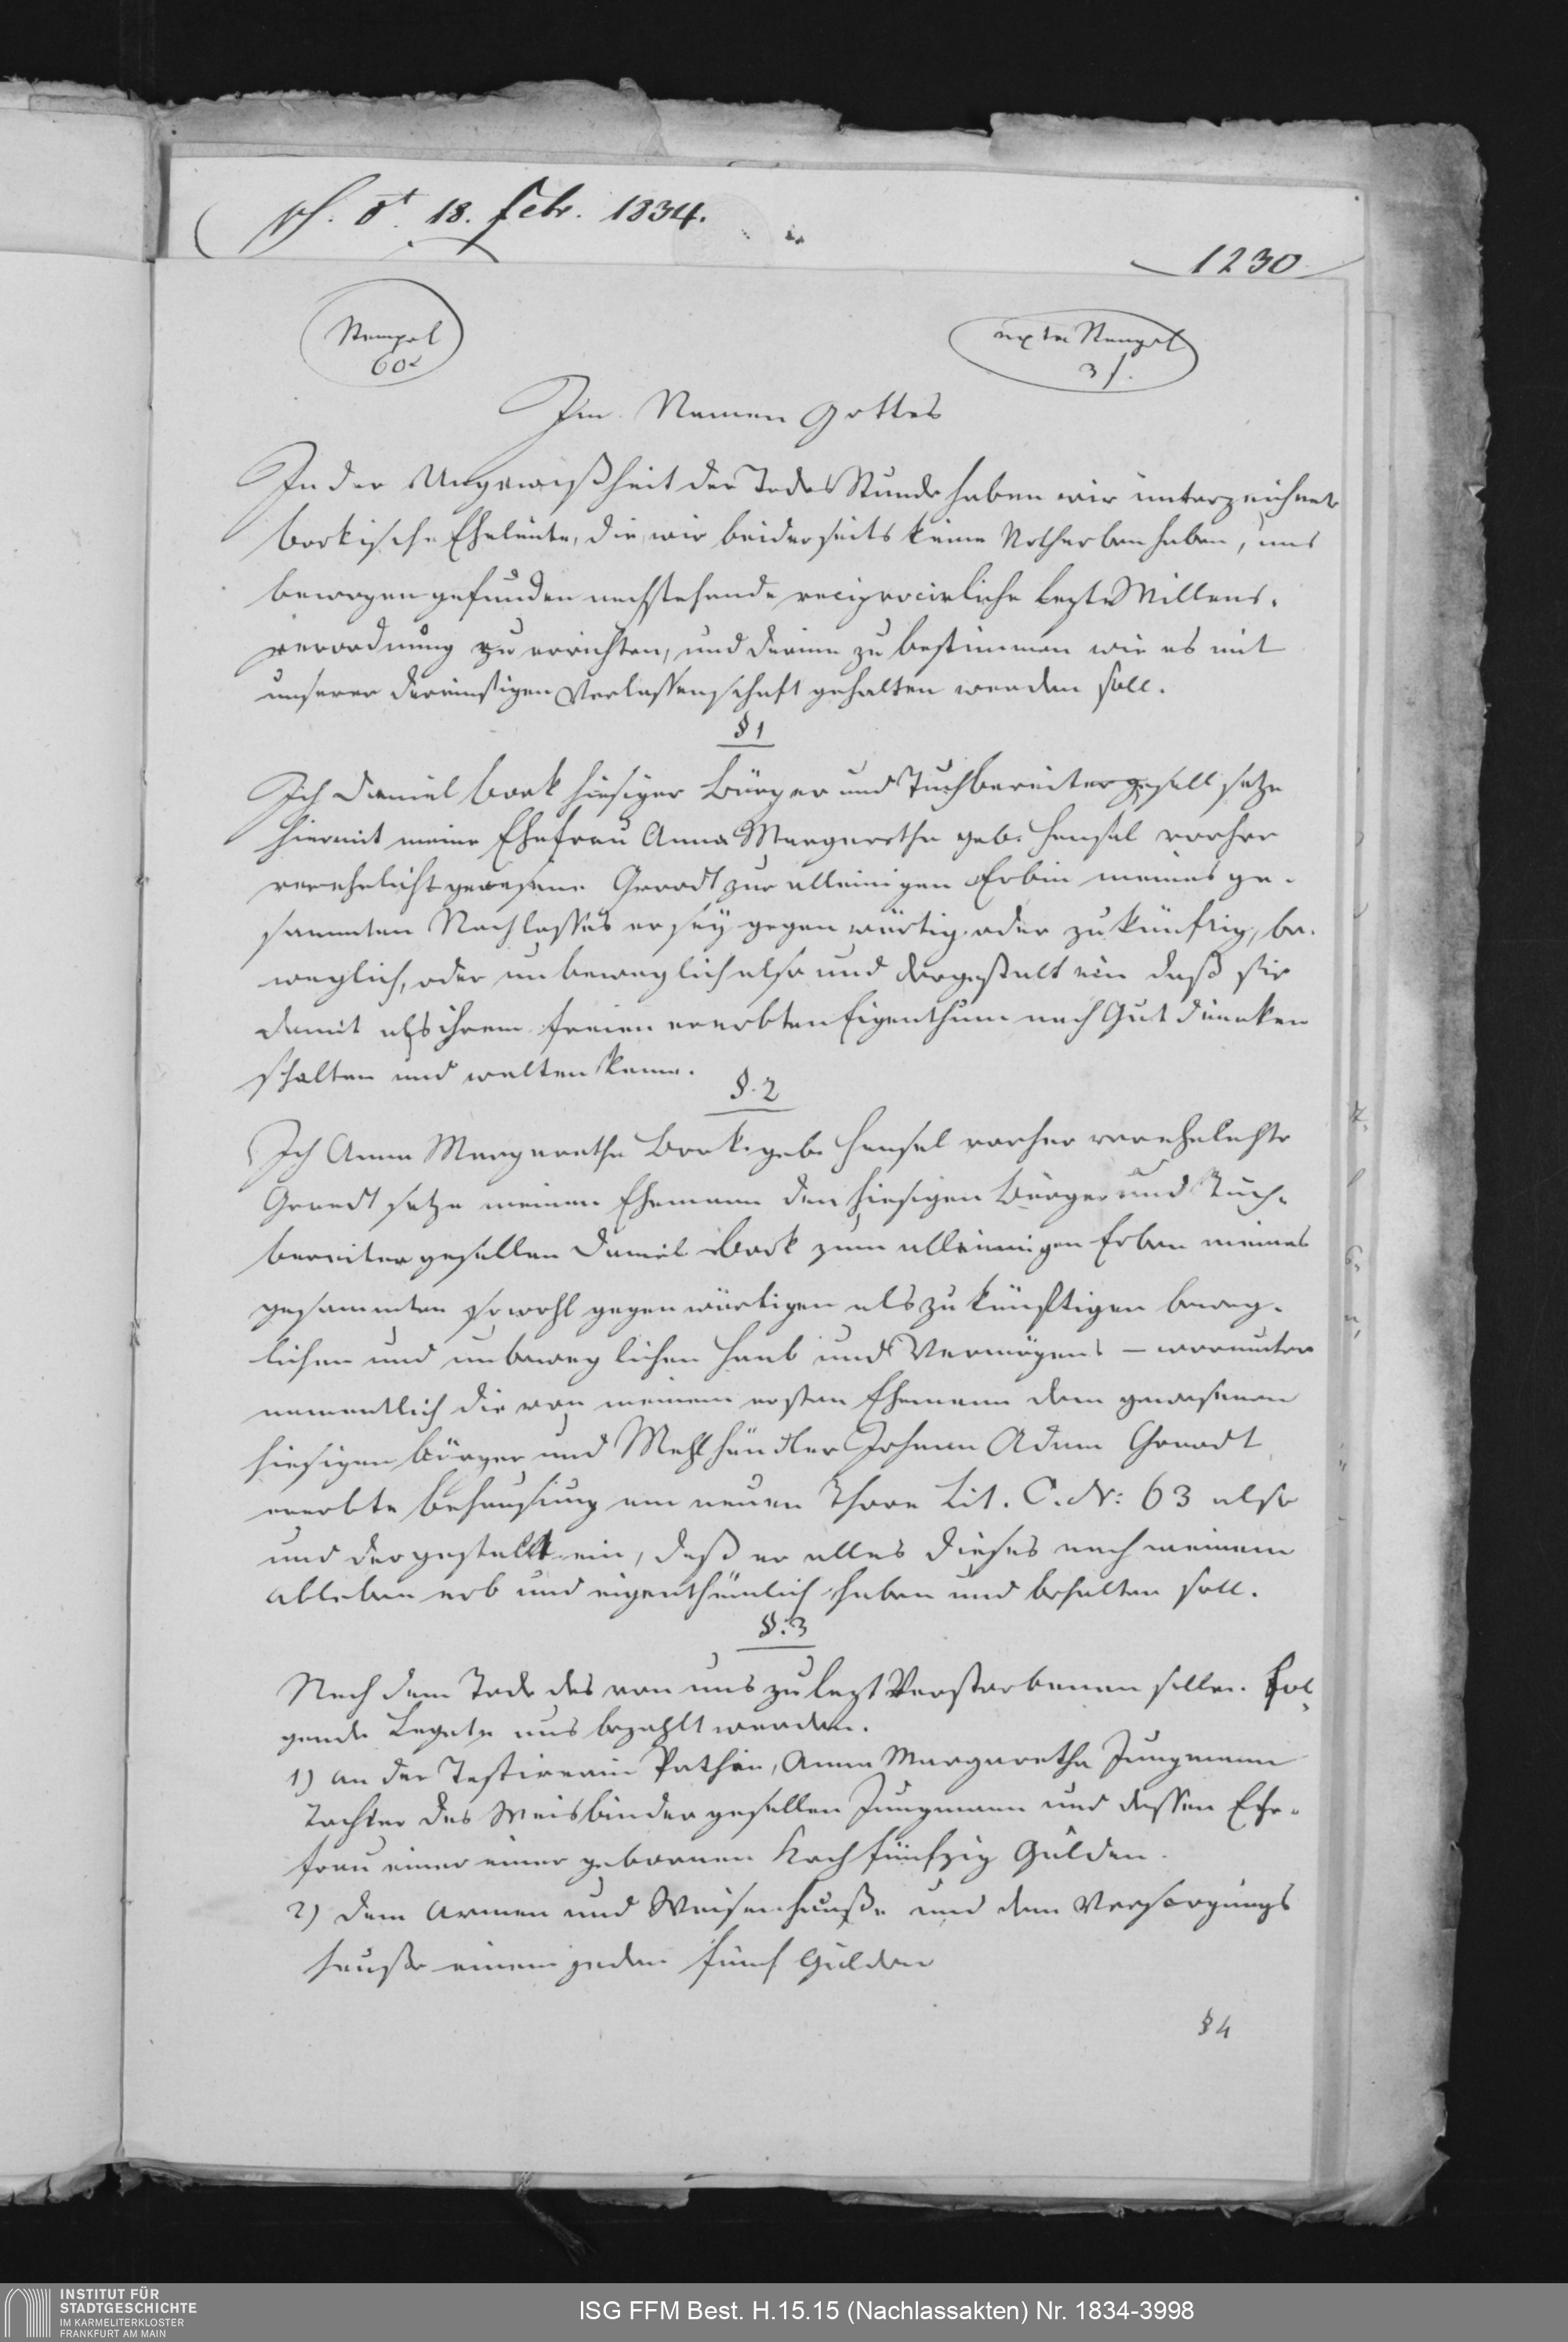 18. Febr. 1834.
1230
Stempel
60x
extra Stempel
3 f.
Im Namen Gottes
In der Ungewißheit der Todes Stunde haben wir unterzeichnete
Borkische Eheleute, die wir beiderseits keine Notherben haben, uns
bewogen gefunden nachstehende reciprocirliche Lezte Willens-
verordnung zu errichten, und darinn zu bestimmen wie es mit
unserer dereinstigen Verlassenschaft gehalten werden soll.
§ 1
Ich Daniel Bork hiesiger Bürger und Tuchbereitergesell setze
hiermit meine Ehefrau Anna Margaretha geb. Hensel vorher
verehelicht gewesene Gerodt zur alleinigen Erbin meines ge-
sammten Nachlasses er sey gegenwärtig oder zukünftig, be-
weglich, oder unbeweglich also und dergestalt ein daß sie
damit als ihrem freien ererbten Eigenthum nach Gutdünken
schalten und walten kann.
§. 2
Ich Anna Margaretha Bork geb. Hensel vorher verehelichte
Gerodt setze meinen Ehemann den hiesigen Bürger und Tuch-
bereitergesellen Daniel Bork zum alleinigen Erben meines
gesammten sowohl gegenwärtigen als zukünftigen beweg-
lichen und unbeweglichen Haab und Vermögens – worunter
namentlich die von meinem ersten Ehemann dem gewesenen
hiesigen Bürger und Mehlhändler Johann Adam Gerodt
ererbte Behausung am neuen Thore Lit. C. N: 63 also
und dergestalt ein, daß er alles dieses nach meinem
Ableben erb und eigenthümlich haben und behalten soll.
§. 3
Nach dem Tode des von uns zulezt Verstorbenen sollen fol-
gende Legate ausbezahlt werden.
1) an der Testirerin Pathin, Anna Margaretha Jungmann
Tochter des Weisbindergesellen Jungmann und dessen Ehe-
frau einer einer gebornen Koch fünfzig Gulden.
2) dem Armen und Waisenhauße und dem Versorgungs
hauße einem jeden fünf Gulden
§ 4
INSTITUT FÜR
STADTGESCHICHTE
IM KARMELITERKLOSTER
FRANKFURT AM MAIN
ISG FFM Best. H.15.15 (Nachlassakten) Nr. 1834-3998